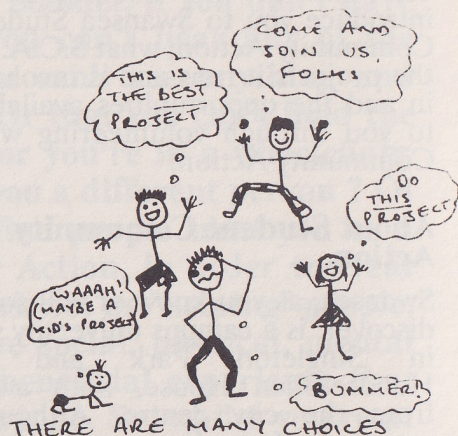 COME AND
JOIN US,
FOLKS
THIS IS
THE BEST
PROJECT
DO
THIS
PROJECT
WAAAH!
(MAYBE A
KID'S PROJECT
BUMMER!
THERE ARE MANY CHOICES